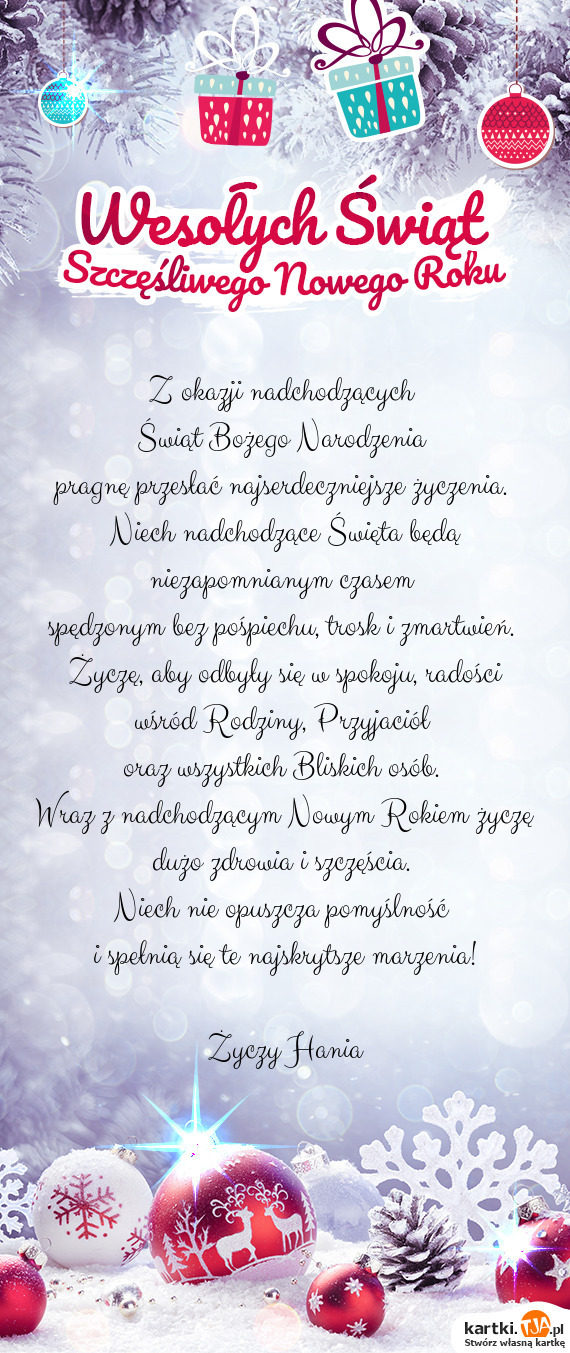 Wesołych Świąt
Szczęśliwego Nowego Roku
Z okazji nadchodzących
Świąt Bożego Narodzenia
pragnę przesłać najserdeczniejsze życzenia.
Niech nadchodzące Święta będą
niezapomnianym czasem
spędzonym bez pośpiechu, trosk i zmartwień.
Życzę, aby odbyły się w spokoju, radości
wśród Rodziny, Przyjaciół
oraz wszystkich Bliskich osób.
Wraz z nadchodzącym Nowym Rokiem życzę
dużo zdrowia i szczęścia.
Niech nie opuszcza pomyślność
i spełnią się te najskrytsze marzenia!
Życzy Hania
kartki.TJA.pl
Stwórz własną kartkę